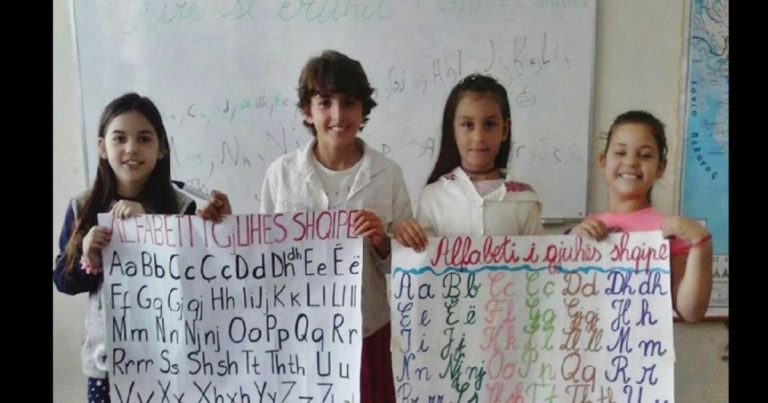 se
Gj, Hh Ii, Jj, Kk, Ll,
ALFABETI I GjUHES SHQIPE
Aa Bb Cc Çç Dd Dhdh Ee Ëë
Ff Gg Gjgj Hh Ii Jj Kk Ll Llll
Mm Nn Njnj Oo Pp Qq Rr
Rrrr Ss Shsh Tt Thth Uu
Vv Xx Xhxh Yy Zz
Alfabeti i gjuhës shqipe
A a B b C c Ç ç D d Dh dh
E e Ë ë F f G g Gj gj H h
I i J j K k L l Ll ll M m
N n Nj nj O o P p Q q R r
Rr rr S s Sh sh T t Th th U u